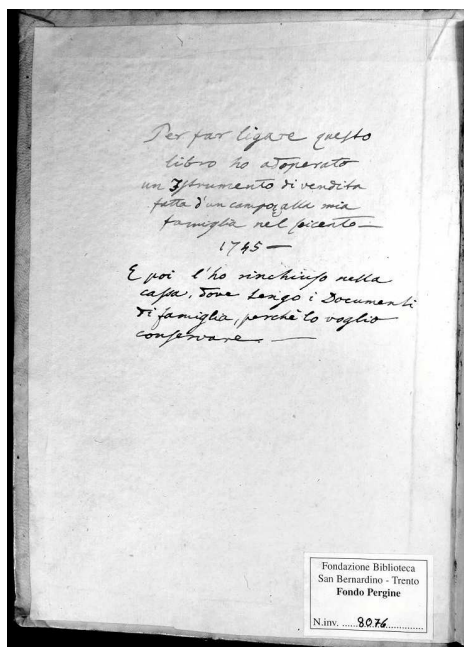 Per far ligare questo
libro ho adoperato
un Istrumento di vendita
fatta d'un campo alla mia
famiglia nel seicento —
1745 —
E poi l'ho rinchiuso nella
cassa, dove tengo i Documenti
di famiglia, perchè lo voglio
conservare. —
Fondazione Biblioteca
San Bernardino - Trento
Fondo Pergine
N.inv. ......8076..............